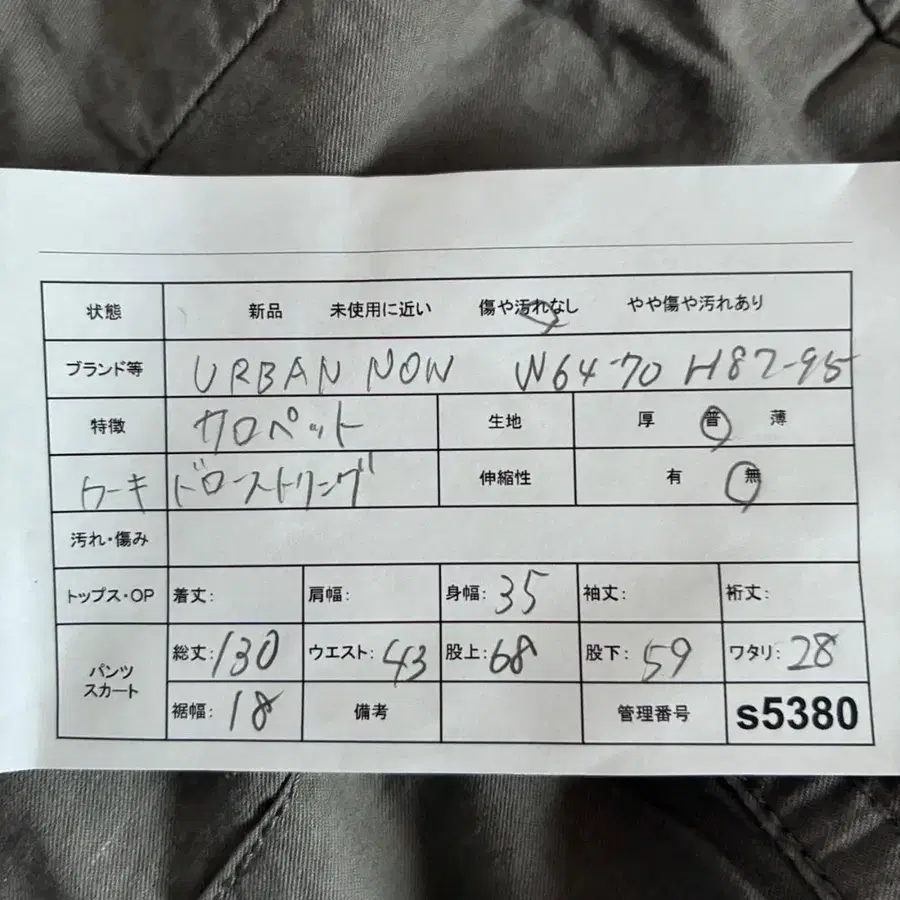 状態 新品 未使用に近い 傷や汚れなし やや傷や汚れあり
ブランド等 URBAN NOW W64-70 H87-95
特徴 サロペット 生地 厚 普 薄
カーキ ドローストリング 伸縮性 有 無
汚れ・傷み
トップス・OP 着丈: 肩幅: 身幅: 35 袖丈: 裄丈:
パンツ スカート 総丈: 130 ウエスト: 43 股上: 68 股下: 59 ワタリ: 28
裾幅: 18 備考 管理番号 s5380